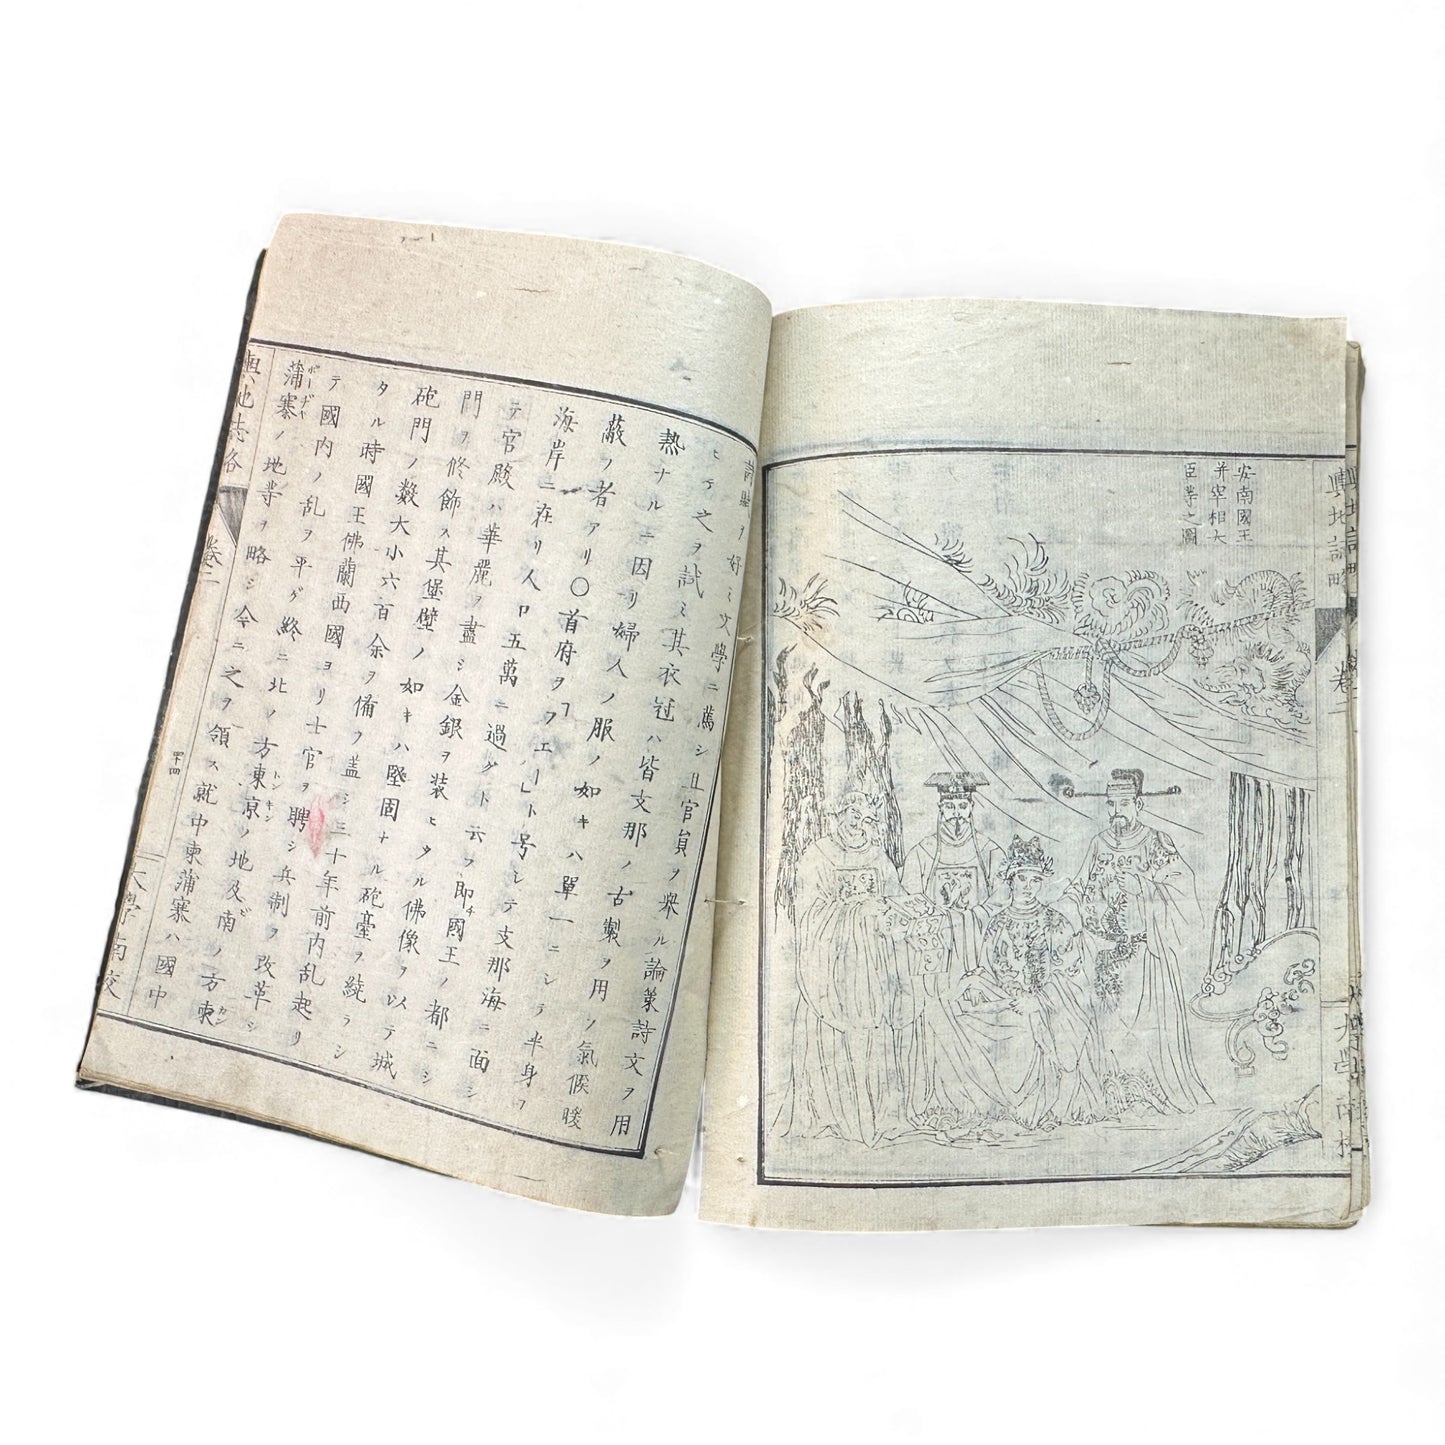 輿地誌略 卷二 大學南校
安南國王
并宰相大
臣等之圖
詩賦ヲ好ミ文學ニ薦シ且官員ヲ舉ル論策詩文ヲ用
ヒテ之ヲ試ミ其衣冠ハ皆支那ノ古製ヲ用フ氣候暖
熱ナルニ因リ婦人ノ服ノ如キハ單一ニシテ半身ヲ
蔽フ者アリ〇首府ヲ「フエー」ト号シテ支那海ニ面シ
海岸ニ在リ人口五萬ニ過グト云フ即チ國王ノ都ニシ
テ官殿ハ華麗ヲ盡シ金銀ヲ装ヒタル佛像ヲ以テ城
門ヲ修飾ス其堡壁ノ如キハ堅固ナル砲臺ヲ繞ラシ
砲門ノ數大小六百余ヲ備フ盖シ三十年前内乱起リ
タル時國王佛蘭西國ヨリ士官ヲ聘シ兵制ヲ改革シ
テ國内ノ乱ヲ平ゲ終ニ北ノ方東京ノ地及ビ南ノ方柬
蒲寨ノ地等ヲ略シ今ニ之ヲ領ス就中柬蒲寨ハ國中
輿地誌略 卷二 四十四 大學南校